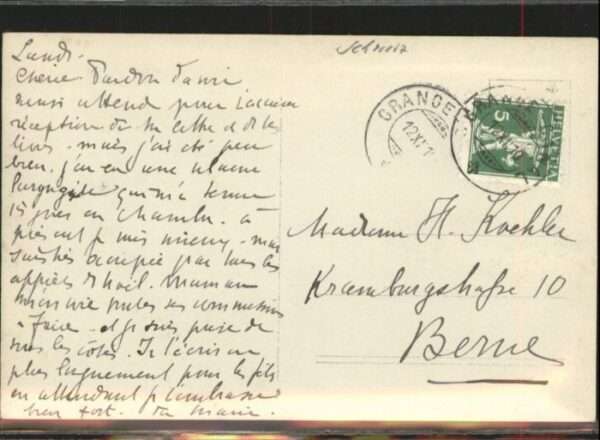 Lundi.
Chérie Pardon d'avoir
aussi attendu pour t'accuser
réception de ta lettre et de tes
livres - mais j'ai été peu
bien. j'ai eu une
qui m'a tenue
15 jours en chambre. à
présent je vais mieux - mais
suis très occupée par tous les
apprêts de Noël. Maman
m'envoie toutes ses commissions
à faire - et je suis prise de
tous les côtés. Je t'écris
plus longuement pour les fêtes
en attendant je t'embrasse
bien fort. ta Marie.
Schweiz
GRANGE
12.XI
5
HELVETIA
Madame H. Koehler
Kramburgstraße 10
Berne